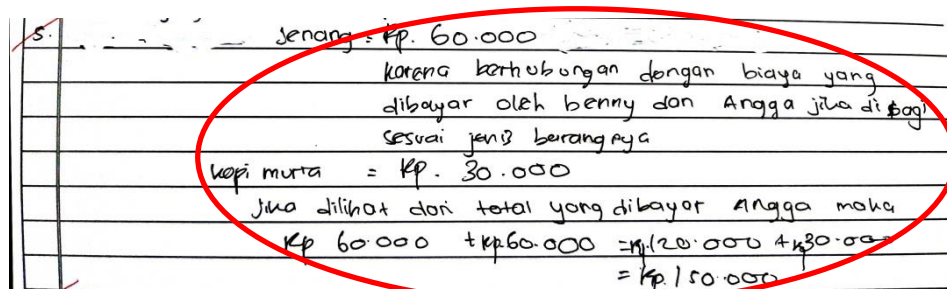 5. Jenang = Rp. 60.000
karena berhubungan dengan biaya yang
dibayar oleh benny dan Angga jika dibagi
sesuai jenis barangnya
kopi muria = Rp. 30.000
jika dilihat dari total yang dibayar Angga maka
Rp 60.000 + Rp.60.000 = Rp.120.000 + Rp30.000
= Rp.150.000